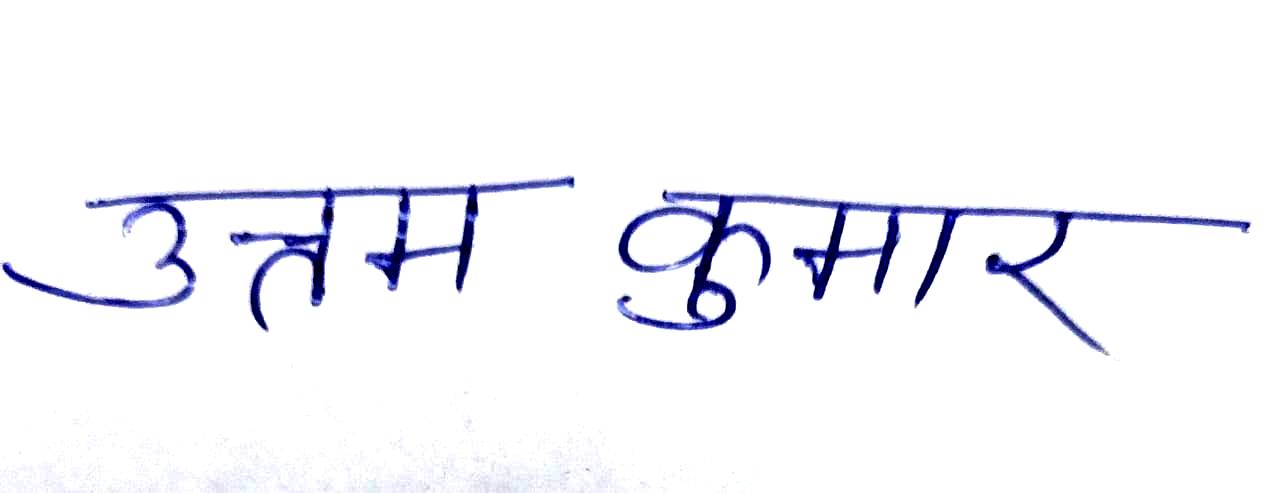 उत्तम कुमार